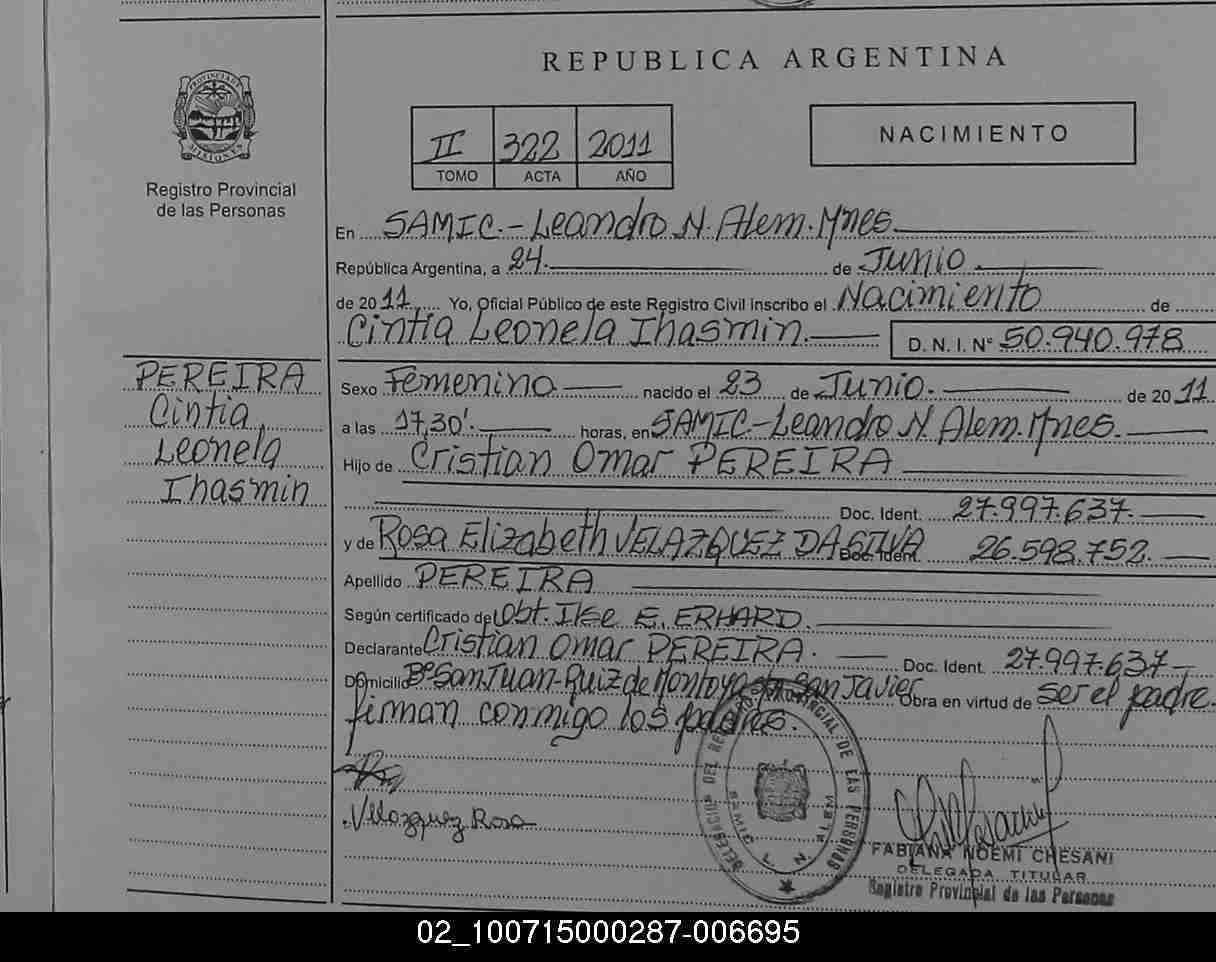 REPUBLICA ARGENTINA
PROVINCIA DE MISIONES
Registro Provincial
de las Personas
II 322 2011
TOMO ACTA AÑO
NACIMIENTO
En SAMIC.-Leandro N. Alem.Mnes.
República Argentina, a 24. de Junio
de 2011 Yo, Oficial Público de este Registro Civil inscribo el Nacimiento de
Cintia Leonela Ihasmin. D. N. I. N° 50.940.978
PEREIRA
Cintia
Leonela
Ihasmin
Sexo Femenino nacido el 23 de Junio. de 2011
a las 17,30'. horas, en SAMIC-Leandro N Alem.Mnes.
Hijo de Cristian Omar PEREIRA
Doc. Ident. 27.997.637.
y de Rosa Elizabeth VELAZQUEZ DA SILVA Doc. Ident. 26.598.752.
Apellido PEREIRA
Según certificado de Obt. Ilse E. ERHARD.
Declarante Cristian Omar PEREIRA. Doc. Ident. 27.997.637
Domicilio B° San Juan-Ruiz de Montoya San Javier Obra en virtud de ser el padre.
firman conmigo los padres.
Velazquez Rosa
DELEGACION DEL REGISTRO PROVINCIAL DE LAS PERSONAS
SAMIC L. N. ALEM
FABIANA NOEMI CHESANI
DELEGADA TITULAR
Registro Provincial de las Personas
02_100715000287-006695